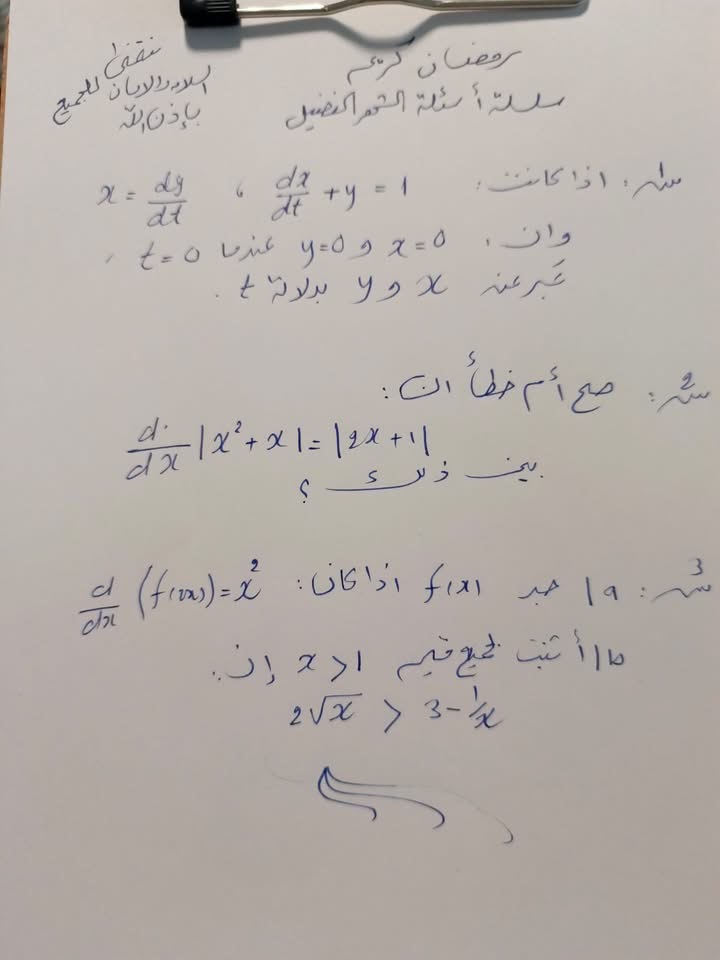 رمضان كريم
سلسلة أسئلة الشهر الفضيل
السلام والامان للجميع
بإذن الله
س1: اذا كانت: dx/dt + y = 1 ، x = dy/dt
وان، x=0 و y=0 عندما t=0
عَبر عن x و y بدلالة t.
س2: صح أم خطأ أن:
d/dx |x² + x| = |2x + 1|
بين ذلك ؟
س3: a/ جد f(x) اذا كان: d/dx (f(2x)) = x²
b/ أثبت لجميع قيم x > 1 إن:
2√x > 3 - 1/x